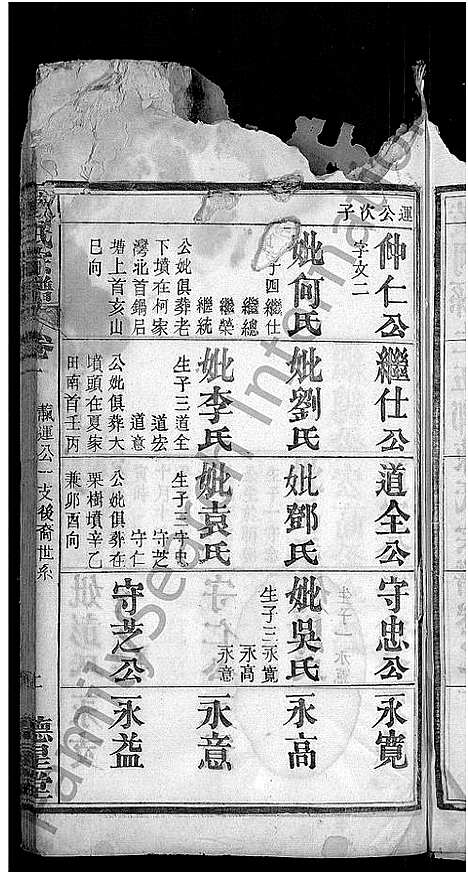 運公次子
仲仁公
字文二
妣何氏
子四繼仕
繼總
繼榮
繼統
公妣俱葬老
下墳在柯家
灣北首鍋㞐
塘上首亥山
巳向
繼仕公
妣劉氏
妣李氏
生子三道全
道宏
道意
公妣俱葬大
墳頭在夏家
田南首壬丙
兼
道全公
妣鄧氏
妣袁氏
生子三守忠
守芝
守仁
公妣俱葬在
栗樹墳辛乙
卯酉向
守忠公
妣吳氏
生子三永寬
永高
永意
守芝公
永寬
永高
永意
永益
氏宗譜
卷一
載運公一支後裔世系
德星堂
Family Search International